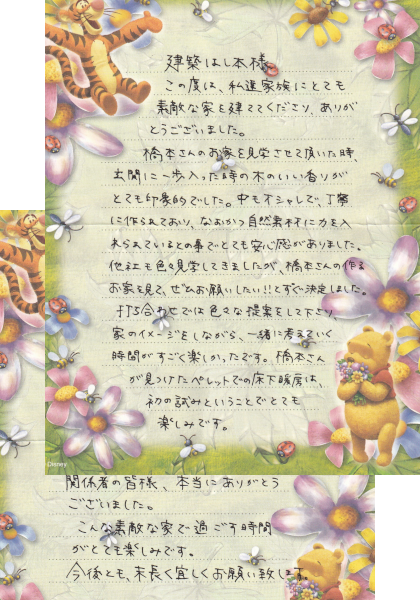 建築はしほ様
この度は、私達家族にとても
素敵な家を建ててくださり、ありが
とうございました。
橋本さんのお家を見学させて頂いた時、
玄関に一歩入った時の木のいい香りが
とても印象的でした。中もオシャレで、丁寧
に作られており、なおかつ自然素材に力を入
れられているとの事でとても安心感がありました。
他社も色々見学してきましたが、橋本さんの作る
お家を見て、ぜひお願いしたい!!とすぐ決定しました。
打ち合わせでは色々な提案をして下さり、
家のイメージをしながら、一緒に考えていく
時間がすごく楽しかったです。橋本さん
が見つけたペレットでの床下暖房は、
初の試みということでとても
楽しみです。
Disney
関係者の皆様、本当にありがとう
ございました。
こんな素敵な家で過ごす時間
がとても楽しみです。
今後とも、末長く宜しくお願い致します。